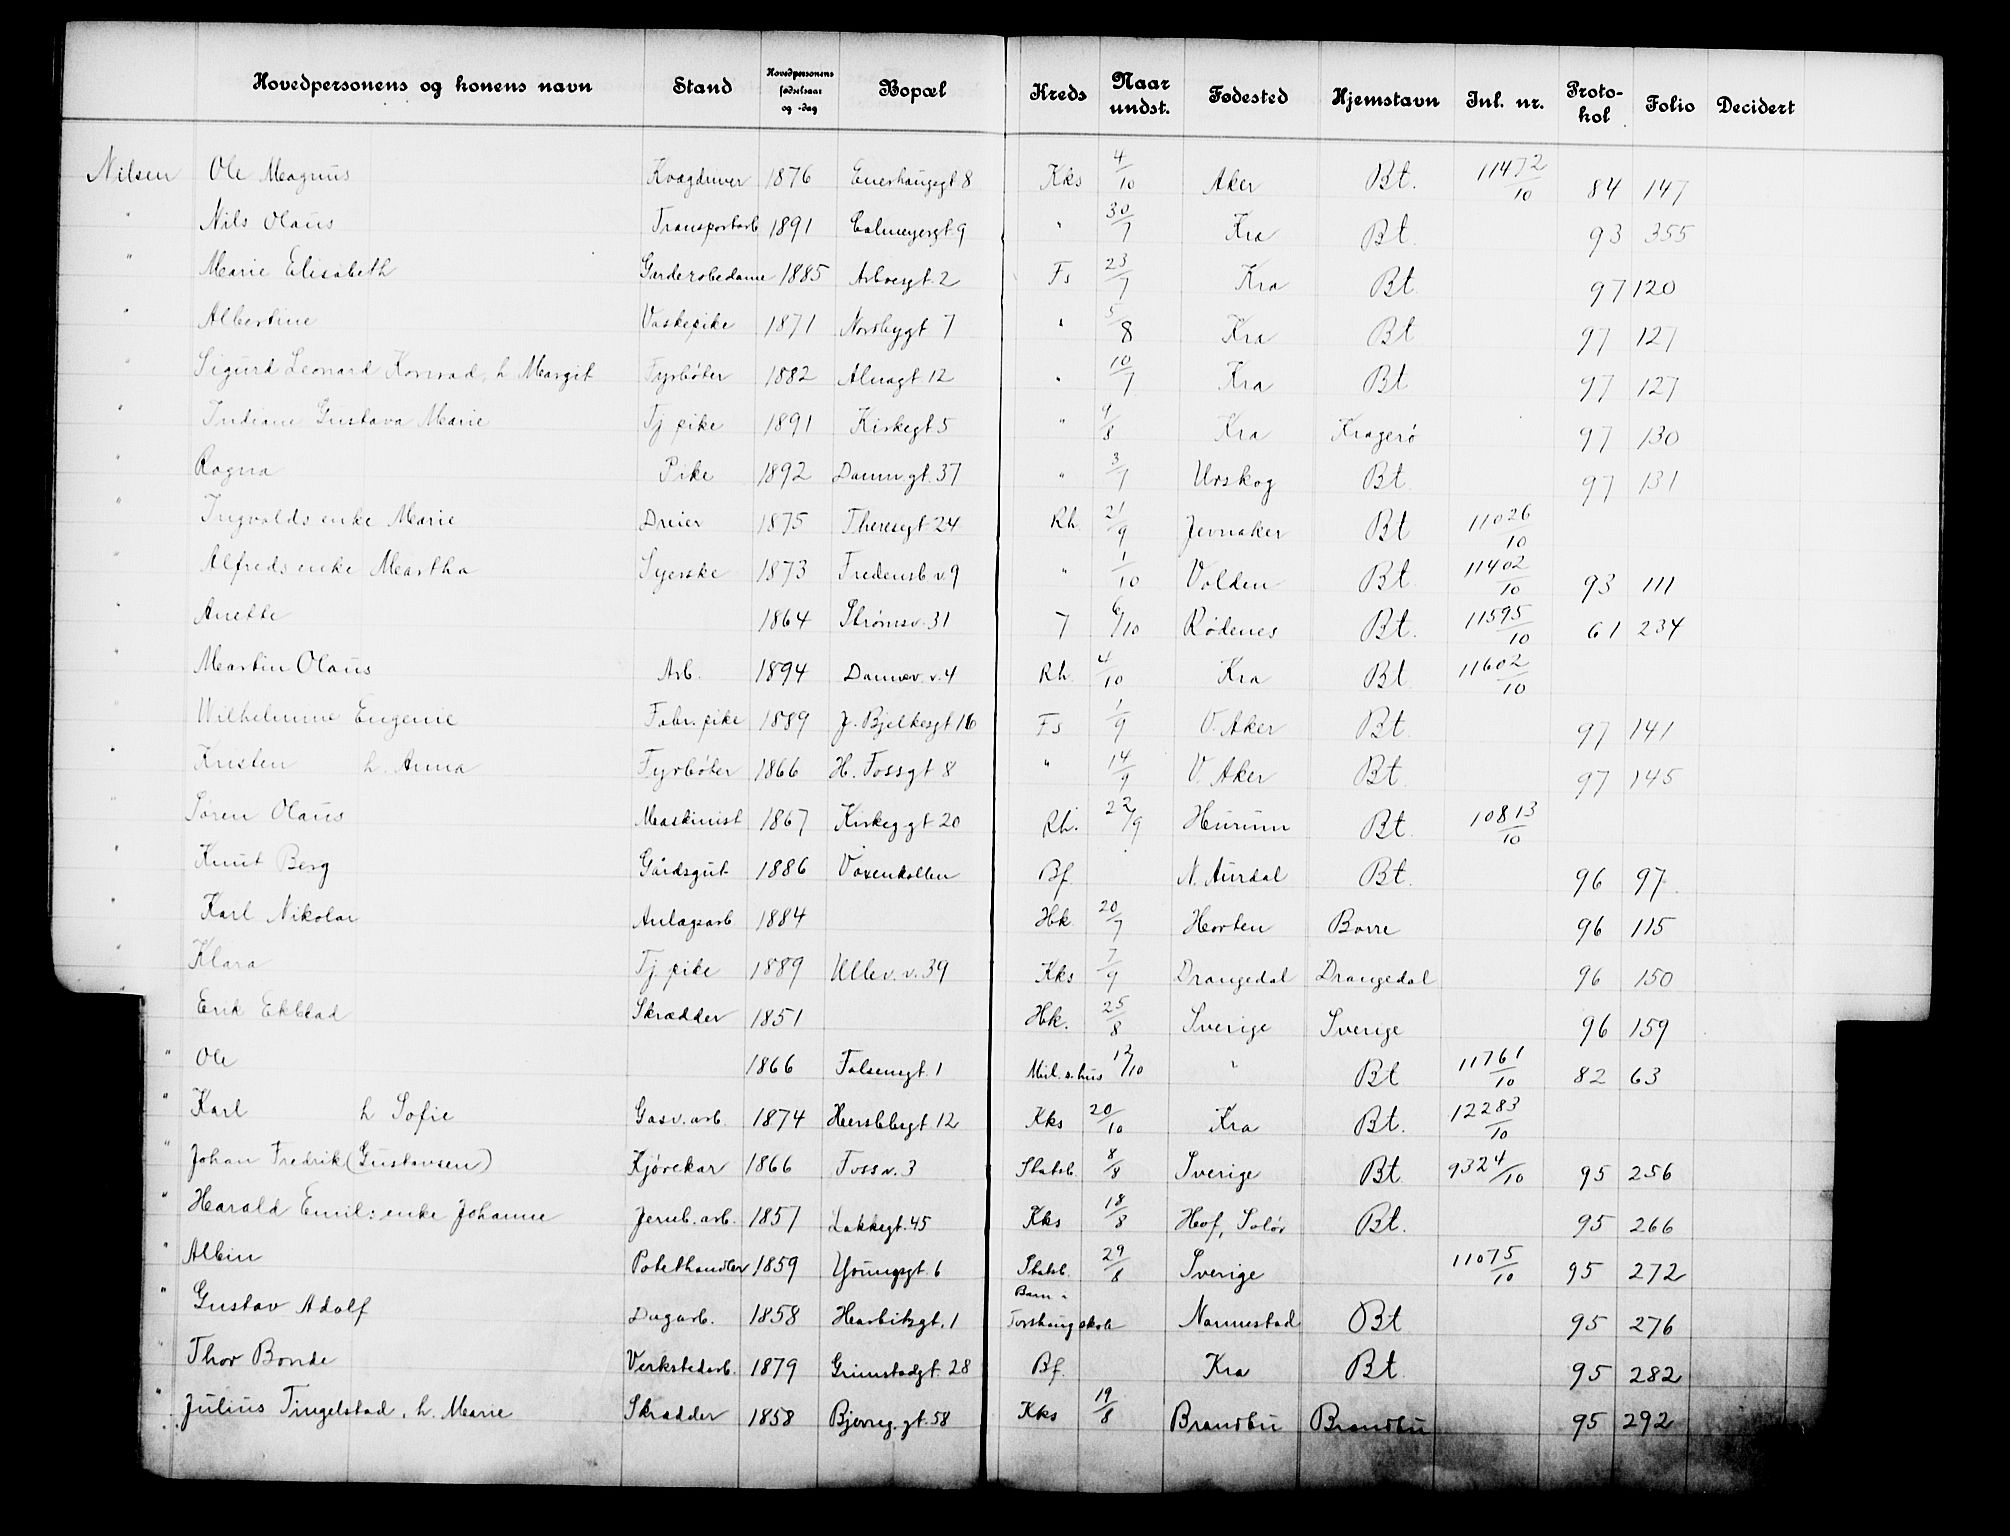 Hovedpersonens og konens navn Stand Hovedpersonens fødselsaar og -dag Bopæl Kreds Naar undst. Fødested Hjemstavn Inl. nr. Protokol Folio Decidert
Nilsen Ole Magnus Kvægdriver 1876 Enerhaugsgt 8 Kks 4/10 Aker Bt. 11472/10 84 147
" Nils Olaus Transportarb 1891 Calmeyersgt 9 " 30/7 Kra Bt. 93 355
" Marie Elisabeth Garderobedame 1885 Arbosgt. 2 Fs 23/7 Kra Bt. 97 120
" Albertine Vaskepike 1871 Norbygt 7 " 5/8 Kra Bt 97 127
" Sigurd Leonard Konrad, h. Margit Fyrbøter 1882 Almagt 12 " 10/7 Kra Bt 97 127
" Indiane Gustava Marie Tj pike 1891 Kirkegt 5 " 9/8 Kra Kragerø 97 130
" Ragna Pike 1892 Damm.gt. 37 " 3/7 Urskog Bt. 97 131
" Ingvalds enke Marie Dreier 1875 Theresegt 24 Rh. 21/9 Jevnaker Bt 11026/10
" Alfreds enke Martha Syerske 1873 Fredensb.v. 9 " 1/10 Volden Bt 11402/10 93 111
" Anette 1864 Strømsv. 31 7 6/10 Rødenes Bt. 11595/10 61 234
" Martin Olaus Arb. 1894 Dannev. v. 4 Rh 4/10 Kra Bt 11602/10
" Wilhelmine Eugenie Fabr. pike 1889 J. Bjelkesgt 16 Fs 1/9 V. Aker Bt. 97 141
" Kristen h. Anna Fyrbøter 1866 H. Fossgt 8 " 14/9 V. Aker Bt. 97 145
" Søren Olaus Maskinist 1867 Kirkeggt 20 Rh. 22/9 Hurum Bt. 10813/10
" Knut Berg Gårdsgut 1886 Voxenkollen Bf. N. Aurdal Bt. 96 97.
" Karl Nikolai Anlægsarb 1884 Hk 20/7 Horten Borre 96 115
" Klara Tj. pike 1889 Ullev. v. 39 Kks 7/9 Drangedal Drangedal 96 150
Erik Ekblad Skrædder 1851 Hk. 25/8 Sverige Sverige 96 159
" Ole 1866 Falsensgt. 1 Mil. s.hus 12/10 " Bt 11761/10 82 63
" Karl h Sofie Gasv. arb. 1874 Herslebsgt. 12 Kks 20/10 Kra Bt. 12283/10
" Johan Fredrik (Gustavsen) Kjørekar 1866 Fossv. 3 Statsb. 8/8 Sverige Bt. 9324/10 95 256
" Harald Emil: enke Johanne Jernb. arb. 1857 Lakkegt. 45 Kks 18/8 Hof, Solør Bt. 95 266
" Albin Potethandler 1859 Youngsgt. 6 Statsb. 29/8 Sverige 11075/10 95 272
" Gustav Adolf Dagarb. 1858 Herbitzgt. 1 Barn " Torshaug skole Nannestad Bt 95 276
" Thor Bonde Verkstedarb. 1879 Grimstadgt. 28 Bf. Kra Bt 95 282
" Julius Tingelstad, h. Marie Skrædder 1858 Bjerreg.gt. 58 Kks 19/8 Brandbu Brandbu 95 292